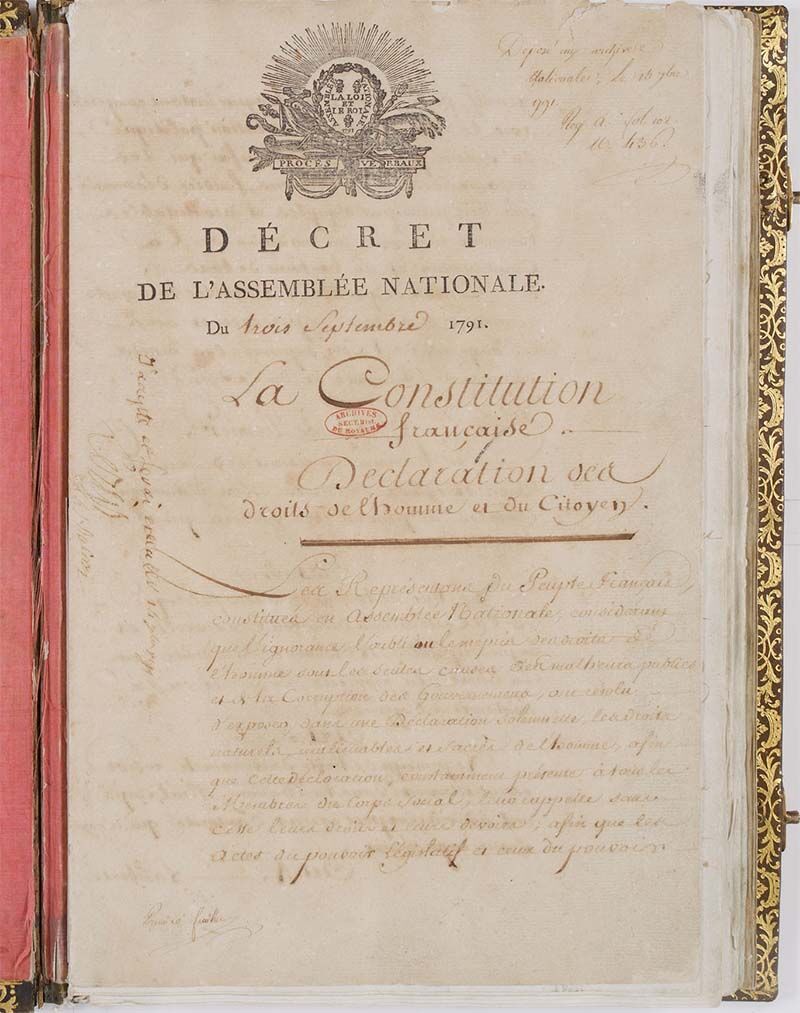 ASSEMBLÉE NATIONALE
LA LOI
ET
LE ROI
PROCÈS VERBAUX
Déposé aux archives
Nationales, le 15 7bre
1791.
DÉCRET
DE L'ASSEMBLÉE NATIONALE.
Du trois Septembre 1791.
La Constitution
française.
ARCHIVES
DU ROYAUME
Déclaration des
droits de l'homme et du Citoyen.
Les Représentans du Peuple Français,
constitués en Assemblée Nationale, considérant
que l'ignorance, l'oubli ou le mépris des droits de
l'homme sont les seules causes des malheurs publics
et de la Corruption des Gouvernemens, ont résolu
d'exposer, dans une Déclaration solemnelle, les droits
naturels, inaliénables et Sacrés de l'homme, afin
que cette déclaration, constamment présente à tous les
Membres du Corps Social, leur rappelle sans
cesse leurs droits et leurs devoirs; afin que les
Actes du pouvoir Législatif et ceux du pouvoir
J'accepte et ferai exécuter 14 7bre 1791